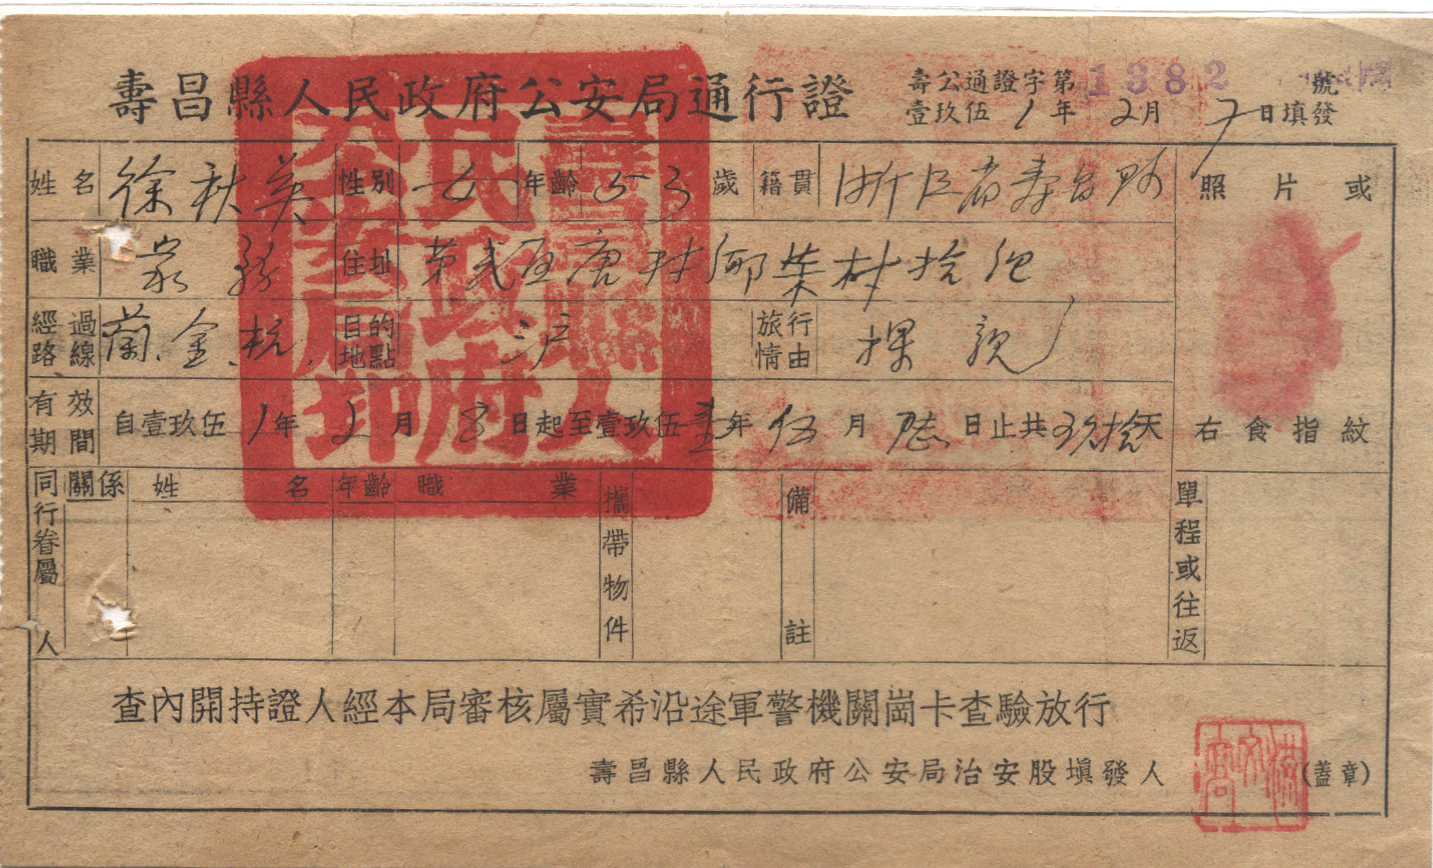 壽昌縣人民政府公安局通行證
壽公通證字第1382號
壹玖伍1年2月7日填發
姓名 徐秋英 性別 女 年齡 53歲 籍貫 浙江省壽昌縣 照片或
職業 家務 住址 第弍區唐村鄉葉村拾保
經過路線 蘭.金.杭. 目的地點 滬 旅行情由 探親
有效期間 自壹玖伍1年2月8日起至壹玖伍壹年伍月 日止共 拾天 右食指紋
同行眷屬 人 關係 姓名 年齡 職業 攜帶物件 備註 單程或往返
查內開持證人經本局審核屬實希沿途軍警機關崗卡查驗放行
壽昌縣人民政府公安局治安股塡發人 (蓋章)
壽昌縣人民政府公安局印